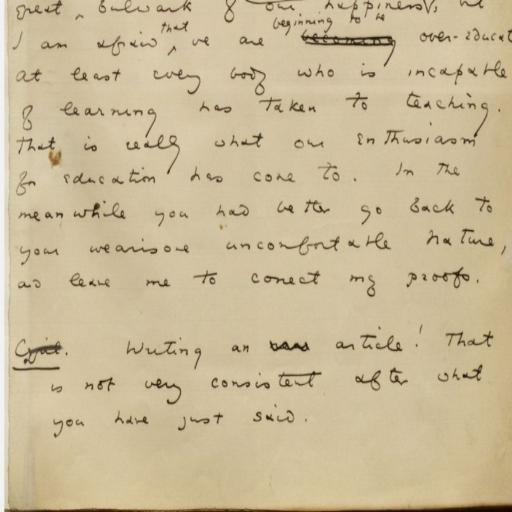 great bulwark of our happiness, but
I am afraid that we are beginning to be over-educat
at least every body who is incapable
of learning has taken to teaching.
that is really what our enthusiasm
for education has come to. In the
meanwhile you had better go back to
your wearisome uncomfortable Nature,
and leave me to correct my proofs.
Cyril. Writing an article! That
is not very consistent after what
you have just said.